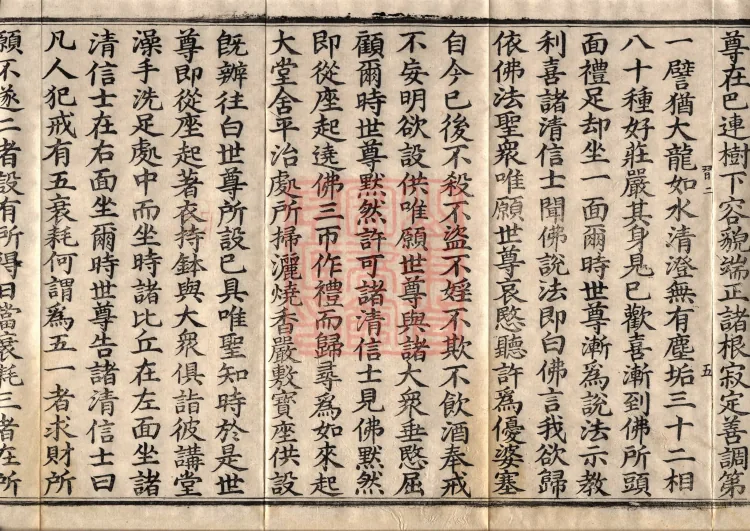 尊在巴連樹下容貌端正諸根寂定善調第
一譬猶大龍如水清澄無有塵垢三十二相
八十種好莊嚴其身見已歡喜漸到佛所頭
面禮足却坐一面爾時世尊漸為說法示教
利喜諸清信士聞佛說法即白佛言我欲歸
依佛法聖衆唯願世尊哀愍聽許為優婆塞
自今已後不殺不盜不婬不欺不飲酒奉戒
不妄明欲設供唯願世尊與諸大衆垂愍屈
顧爾時世尊默然許可諸清信士見佛默然
即從座起遶佛三帀作禮而歸尋為如來起
大堂舍平治處所掃灑燒香嚴敷寶座供設
旣辦往白世尊所設已具唯聖知時於是世
尊即從座起著衣持鉢與大衆俱詣彼講堂
澡手洗足處中而坐時諸比丘在左面坐諸
清信士在右面坐爾時世尊告諸清信士曰
凡人犯戒有五衰耗何謂為五一者求財所
願不遂二者設有所得日當衰耗三者在所